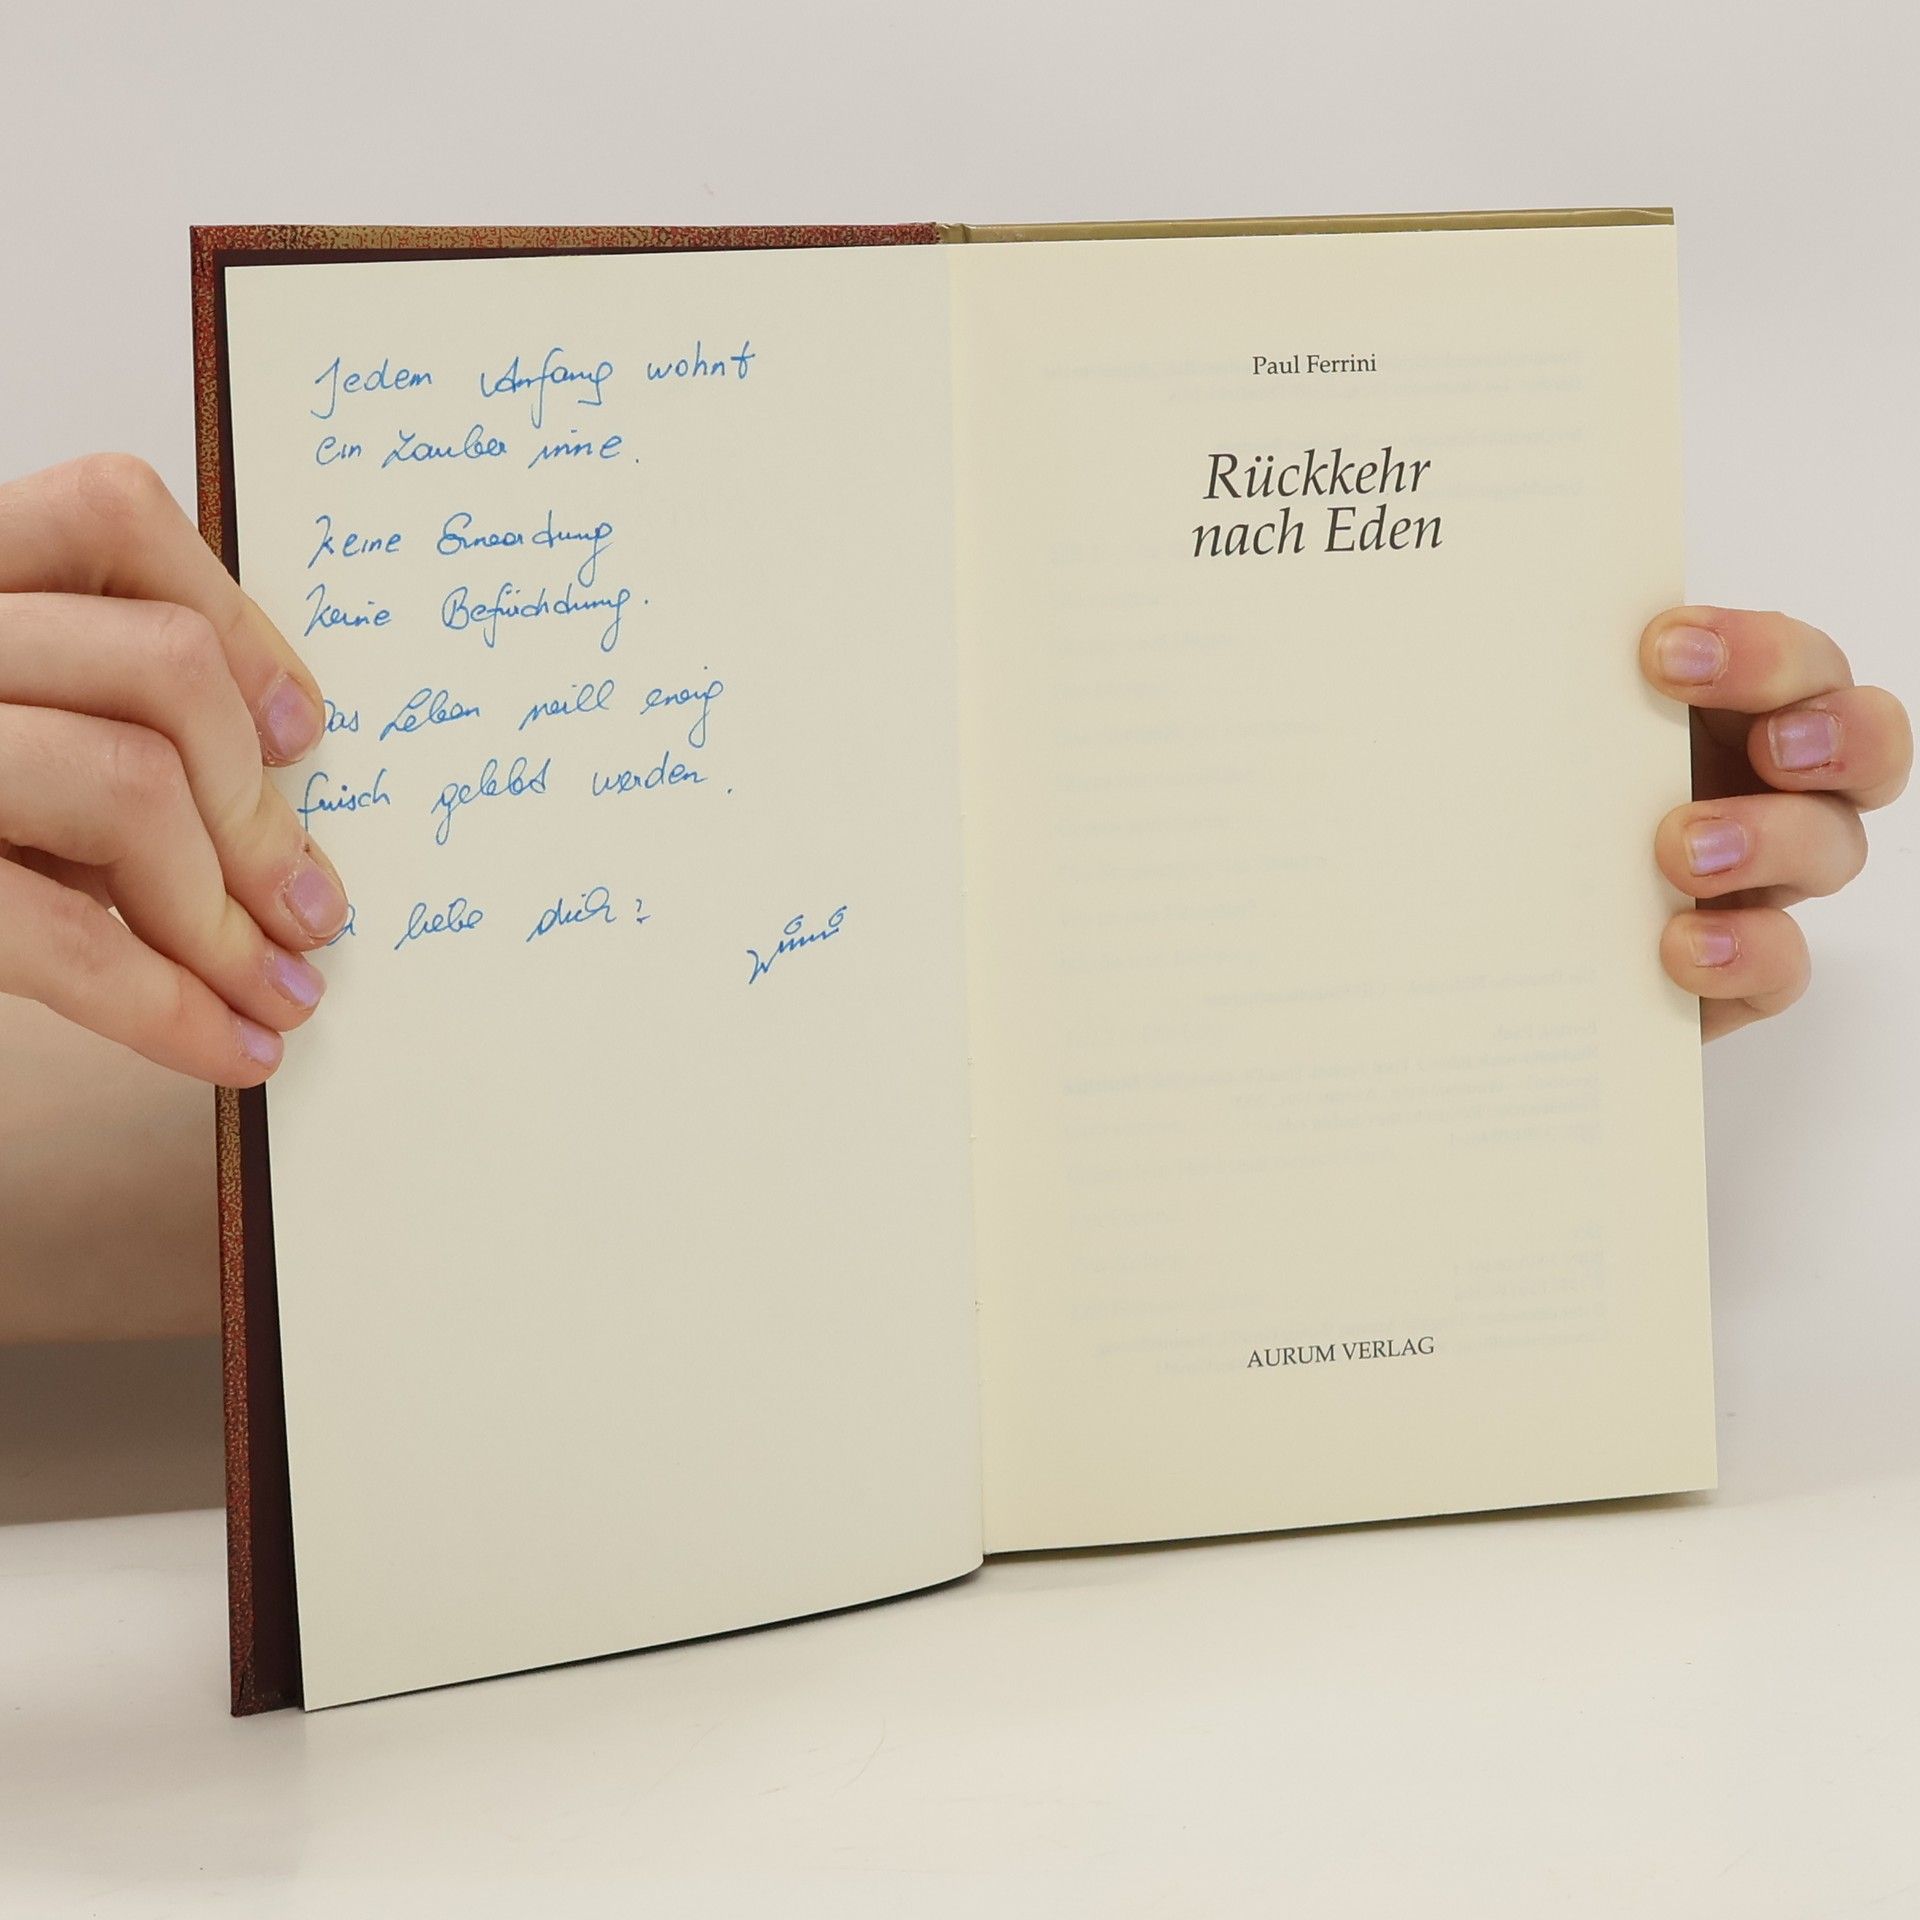 Jedem Anfang wohnt
ein Zauber inne.
Keine Erwartung
Keine Befürchtung.
Das Leben will ewig
frisch gelebt werden.
liebe dich!
Paul Ferrini
Rückkehr
nach Eden
AURUM VERLAG